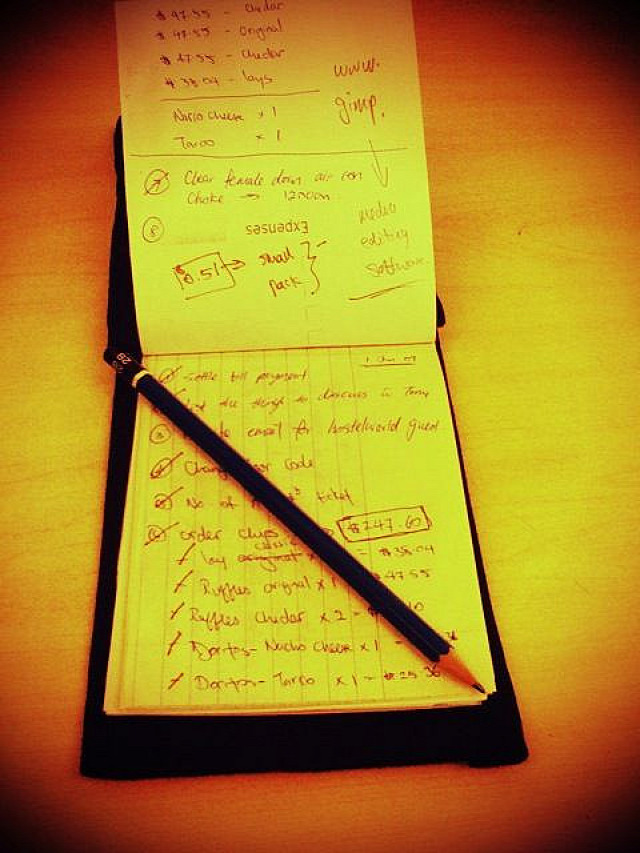 $47.55 - Chedar
$47.55 - original
$47.55 - Chedar
$38.04 - lays
Nacho Cheese x 1
Tarco x 1
www.
gimp.
7 Clear female dorm air con
Choke → 1200am
8
Expenses
$0.51 → small
pack
media
editing
software
2B
1 Settle bill payment
the things to discuss w Tony
3 to email for hostelworld guest
4 Change door code
5 No of ticket
6 order chips $247.60
lay classic original x = $38.04
Ruffles original x 1 $47.55
Ruffles Chedar x 2 = 10
Doritos - Nacho Cheese x 1 = 36
Doritos - Tarco x 1 = $25.36